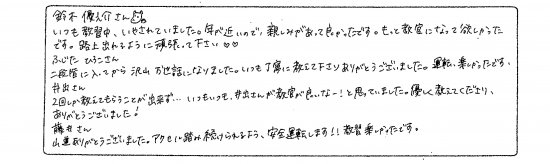 鈴木 優介さん
いつも教習中、いやされていました。年が近いので、親しみがあって良かったです。もっと教官になって欲しかった
です。路上出れるように頑張って下さい♡♡
ふじた ひろこさん
二段階に入ってから沢山お世話になりました。いつも丁寧に教えて下さりありがとうございました。運転、楽しかったです。
井出さん
2回しか教えてもらうことが出来ず… いつもいつも、井出さんが教官が良いなー!と思っていました。優しく教えてくださり、
ありがとうございました!
藤井さん
山道ありがとうございました。アクセル踏み続けられるよう、安全運転します!!教習楽しかったです。